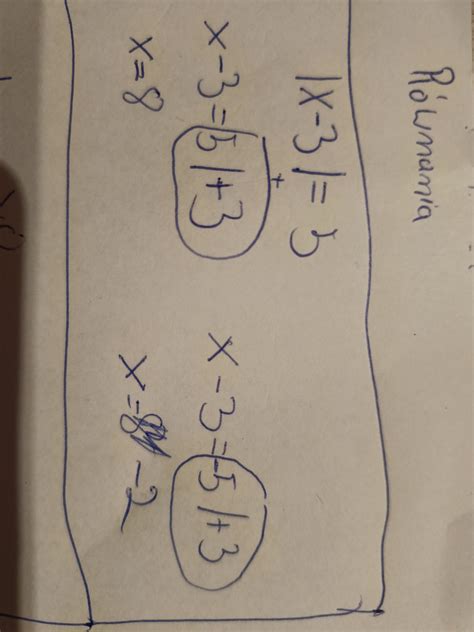 Równania
|x-3| = 5
x-3=5 |+3
x=8
x-3=-5 |+3
x= -2